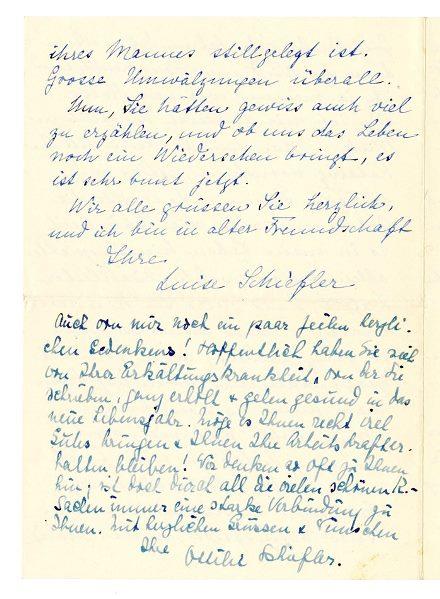 ihres Mannes stillgelegt ist.
Grosse Umwälzungen überall.
Nun, Sie hätten gewiss auch viel
zu erzählen, und ob uns das Leben
noch ein Wiedersehen bringt, es
ist sehr bunt jetzt.
Wir alle grüssen Sie herzlich,
und ich bin in alter Freundschaft
Ihre
Luise Schiefler
Auch von mir noch ein paar Zeilen herzli-
chen Gedenkens! Hoffentlich haben Sie sich
von Ihrer Erkältungskrankheit, von der Sie
schrieben, ganz erholt & gehen gesund in das
neue Lebensjahr. Möge es Ihnen recht viel
Gutes bringen & Ihnen Ihre Arbeitskraft er-
halten bleiben! Wir denken so oft zu Ihnen
hin, ist doch durch all die vielen schönen K.-
Sachen immer eine starke Verbindung zu
Ihnen. Mit herzlichen Grüssen & Wünschen
Ihre Ottilie Schiefler.